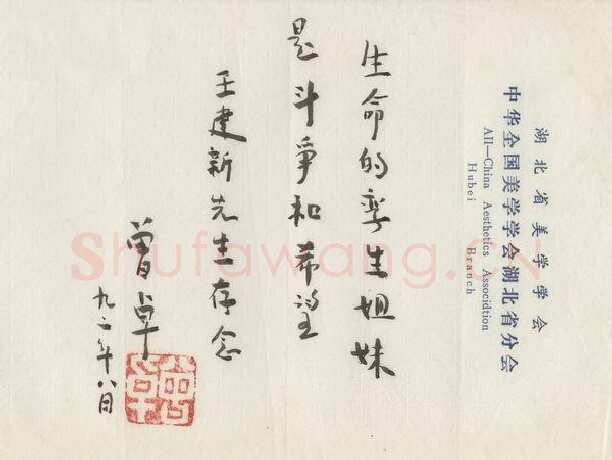 湖北省美学学会
中华全国美学学会湖北省分会
All—China Aesthetics Associdtion
Hubei Branch
生命的孪生姐妹
是斗争和希望
王建新先生存念
曾卓
九二年八月
曾卓
Shufawang.CN